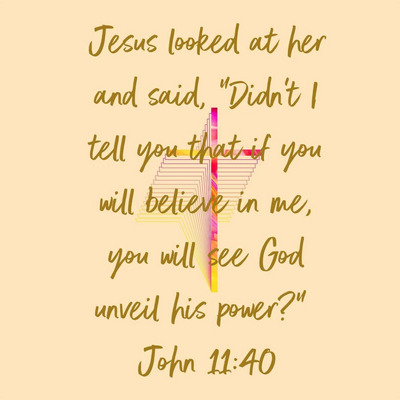 Jesus looked at her
and said, "Didn't I
tell you that if you
will believe in me,
you will see God
unveil his power?"
John 11:40